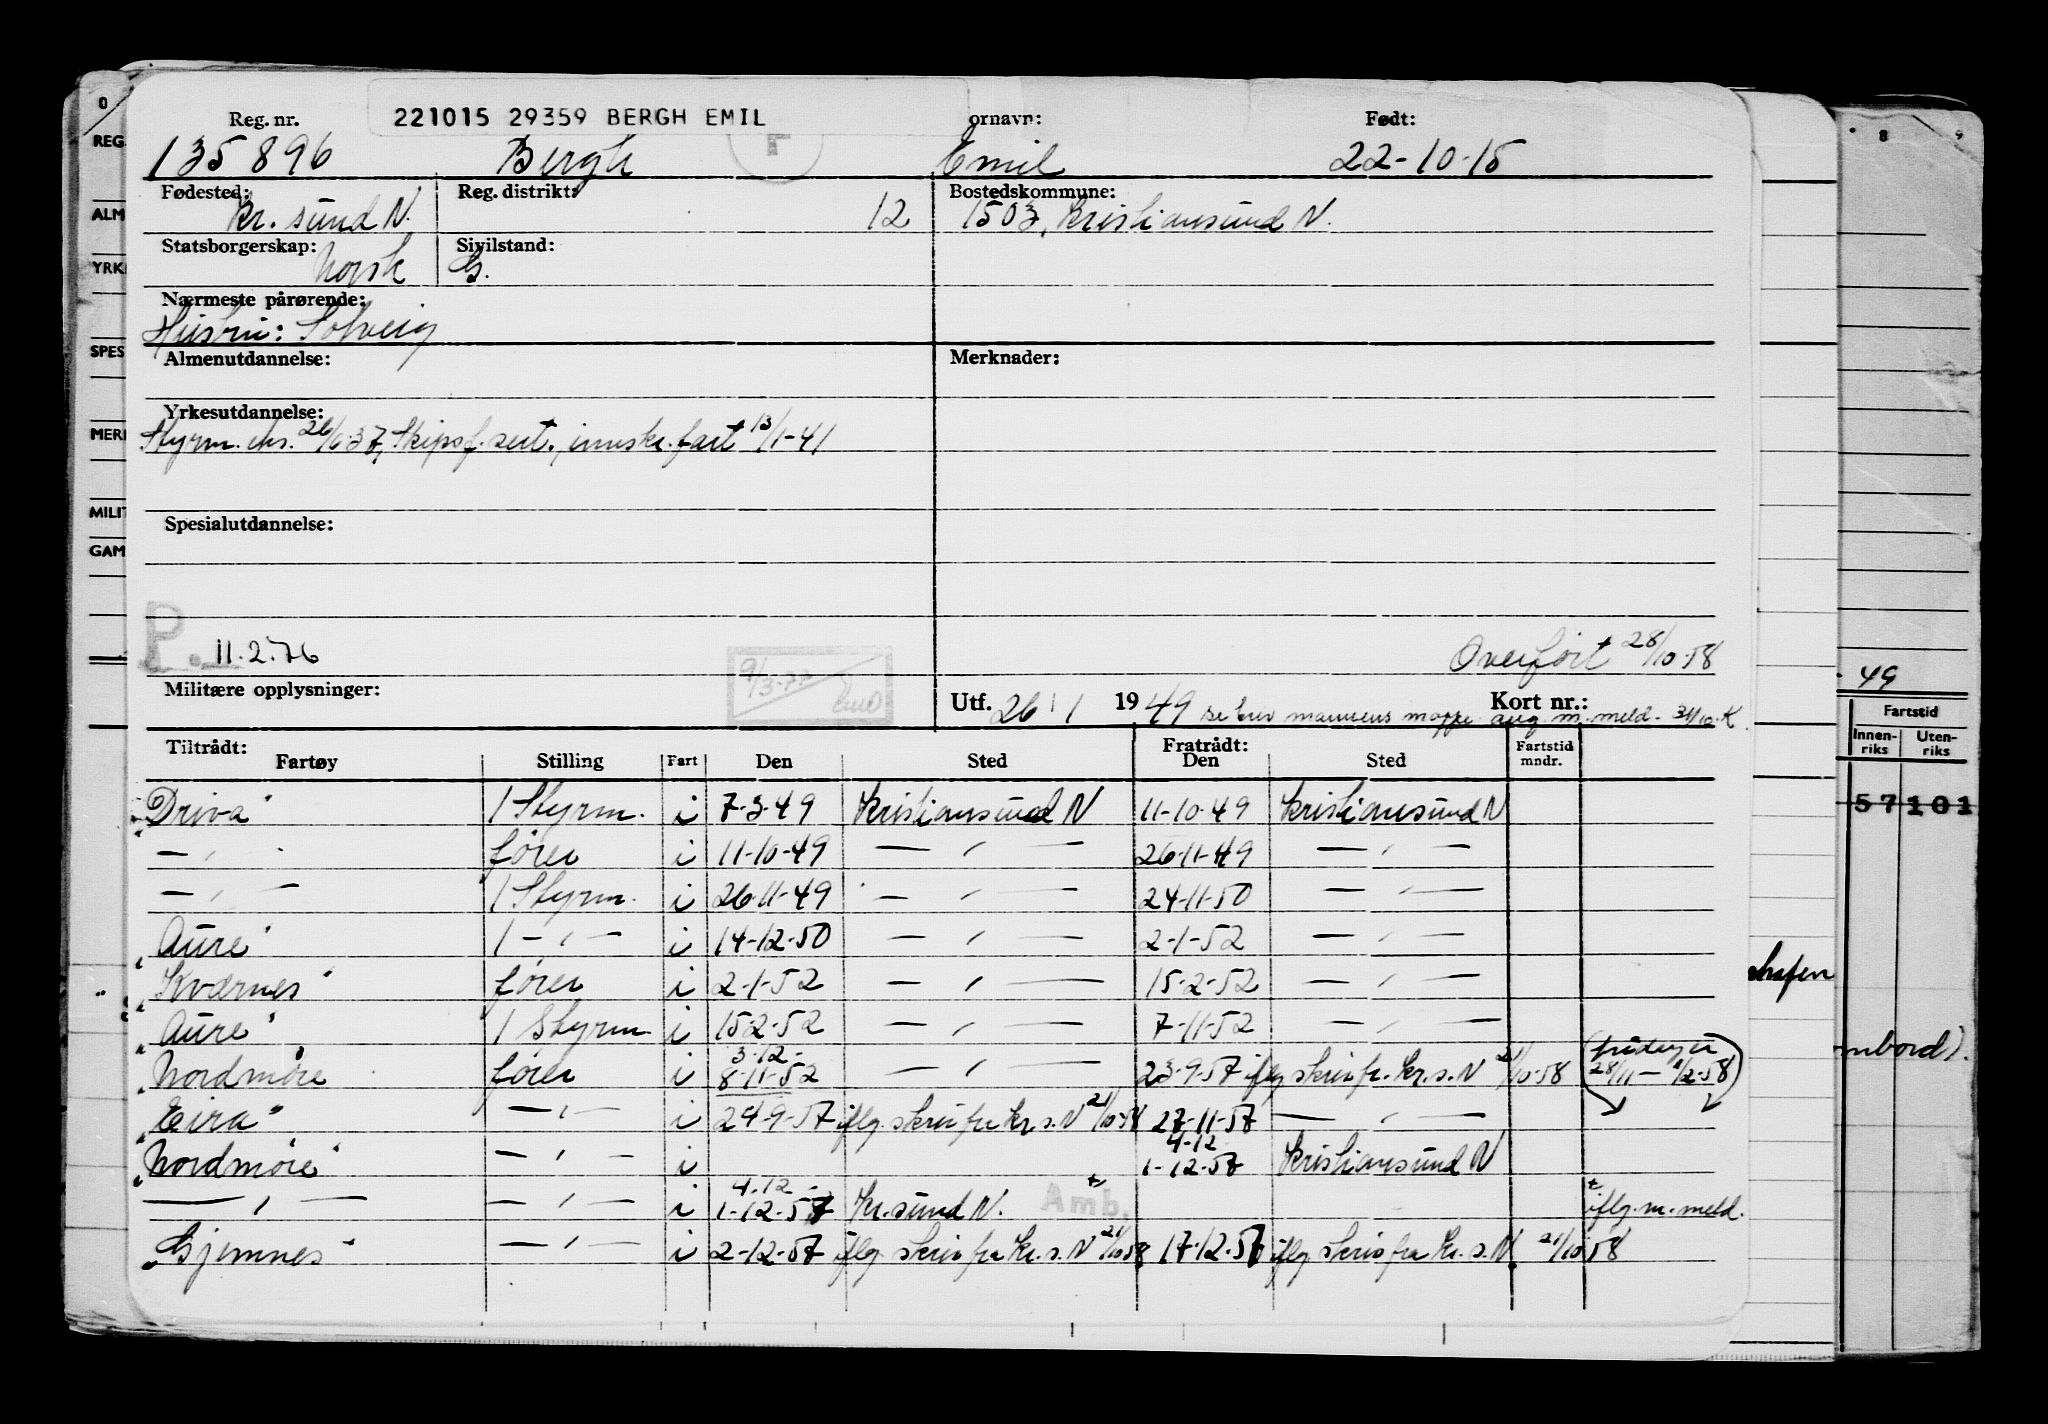 221015 29359 BERGH EMIL
Reg. nr. ornavn: Født:
135896 Bergh Emil 22-10-15
Fødested: Reg. distrikt: Bostedskommune:
Kr. sund N. 12 1503, Kristiansund N.
Statsborgerskap: Sivilstand:
Norsk G.
Nærmeste pårørende:
Hustru: Solveig
Almenutdannelse: Merknader:
Yrkesutdannelse:
Styrm. eks. 26/6-37, Skipsf. sert., innskr. fart 13/1-41
Spesialutdannelse:
P. 11.2.76
Overført 28/10-58
Militære opplysninger: Utf. 26/1 1949 Kort nr.:
9/3-77
se brev mannens mappe ang m. meld. 31/10. K.
Tiltrådt: Fratrådt:
Fartøy Stilling Fart Den Sted Den Sted Fartstid mndr.
"Driva" 1 Styrm. i 7-3-49 Kristiansund N 11-10-49 Kristiansund N
— " — fører i 11-10-49 — " — 26-11-49 — " —
— " — 1 Styrm. i 26-11-49 — " — 24-11-50 — " —
"Aure" 1 — " — i 14-12-50 — " — 2-1-52 — " —
"Kværnes" fører i 2-1-52 — " — 15-2-52 — " —
"Aure" 1 Styrm i 15-2-52 — " — 7-11-52 — " —
3-12-
"Nordmøre fører i 8-11-52 — " — 23-9-57 iflg skriv fr. Kr. s. N 21/10-58 28/11 - 1/2-58
"Eira" — " — i 24-9-57 iflg. skriv fra Kr. s. N 21/10-58 27-11-57 — " —
4-12
"Nordmøre" — " — i 1-12-57 Kristiansund N
4-12-
— " — — " — i 1-12-57 Kr. sund N. Amb. iflg. m. meld.
"Gjemnes" — " — i 2-12-57 iflg. skriv fra Kr. s. N 21/10-58 17-12-57 iflg skriv fra Kr. s. N. 21/10-58
0
REG
ALM
YRK
SPES
MERK
MILIT
GAM
8 9
49
Fartstid
Innen-riks Uten-riks
57 101
ombord).